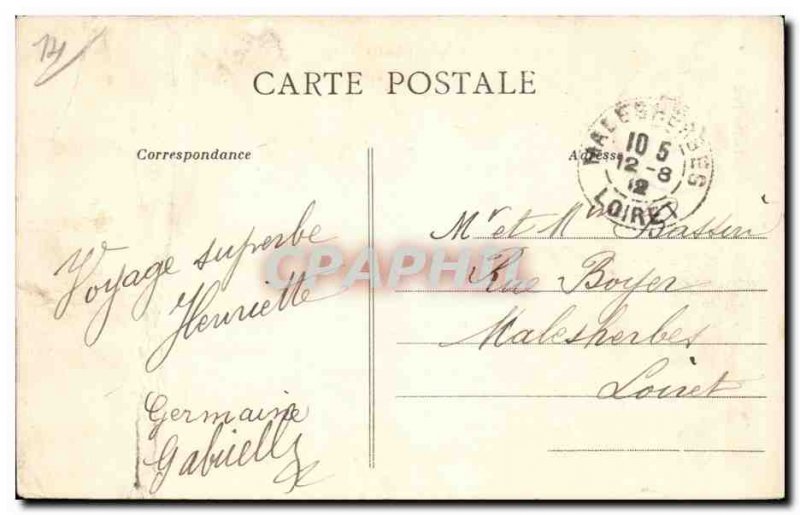 14
CARTE POSTALE
Correspondance
Adresse
MALESHERBES
10 5
12-8
12
LOIRET
Voyage superbe
Henriette
Germaine
Gabrielle
Mr et Mme Bassin
Rue Boyer
Malesherbes
Loiret
CPAPHIL